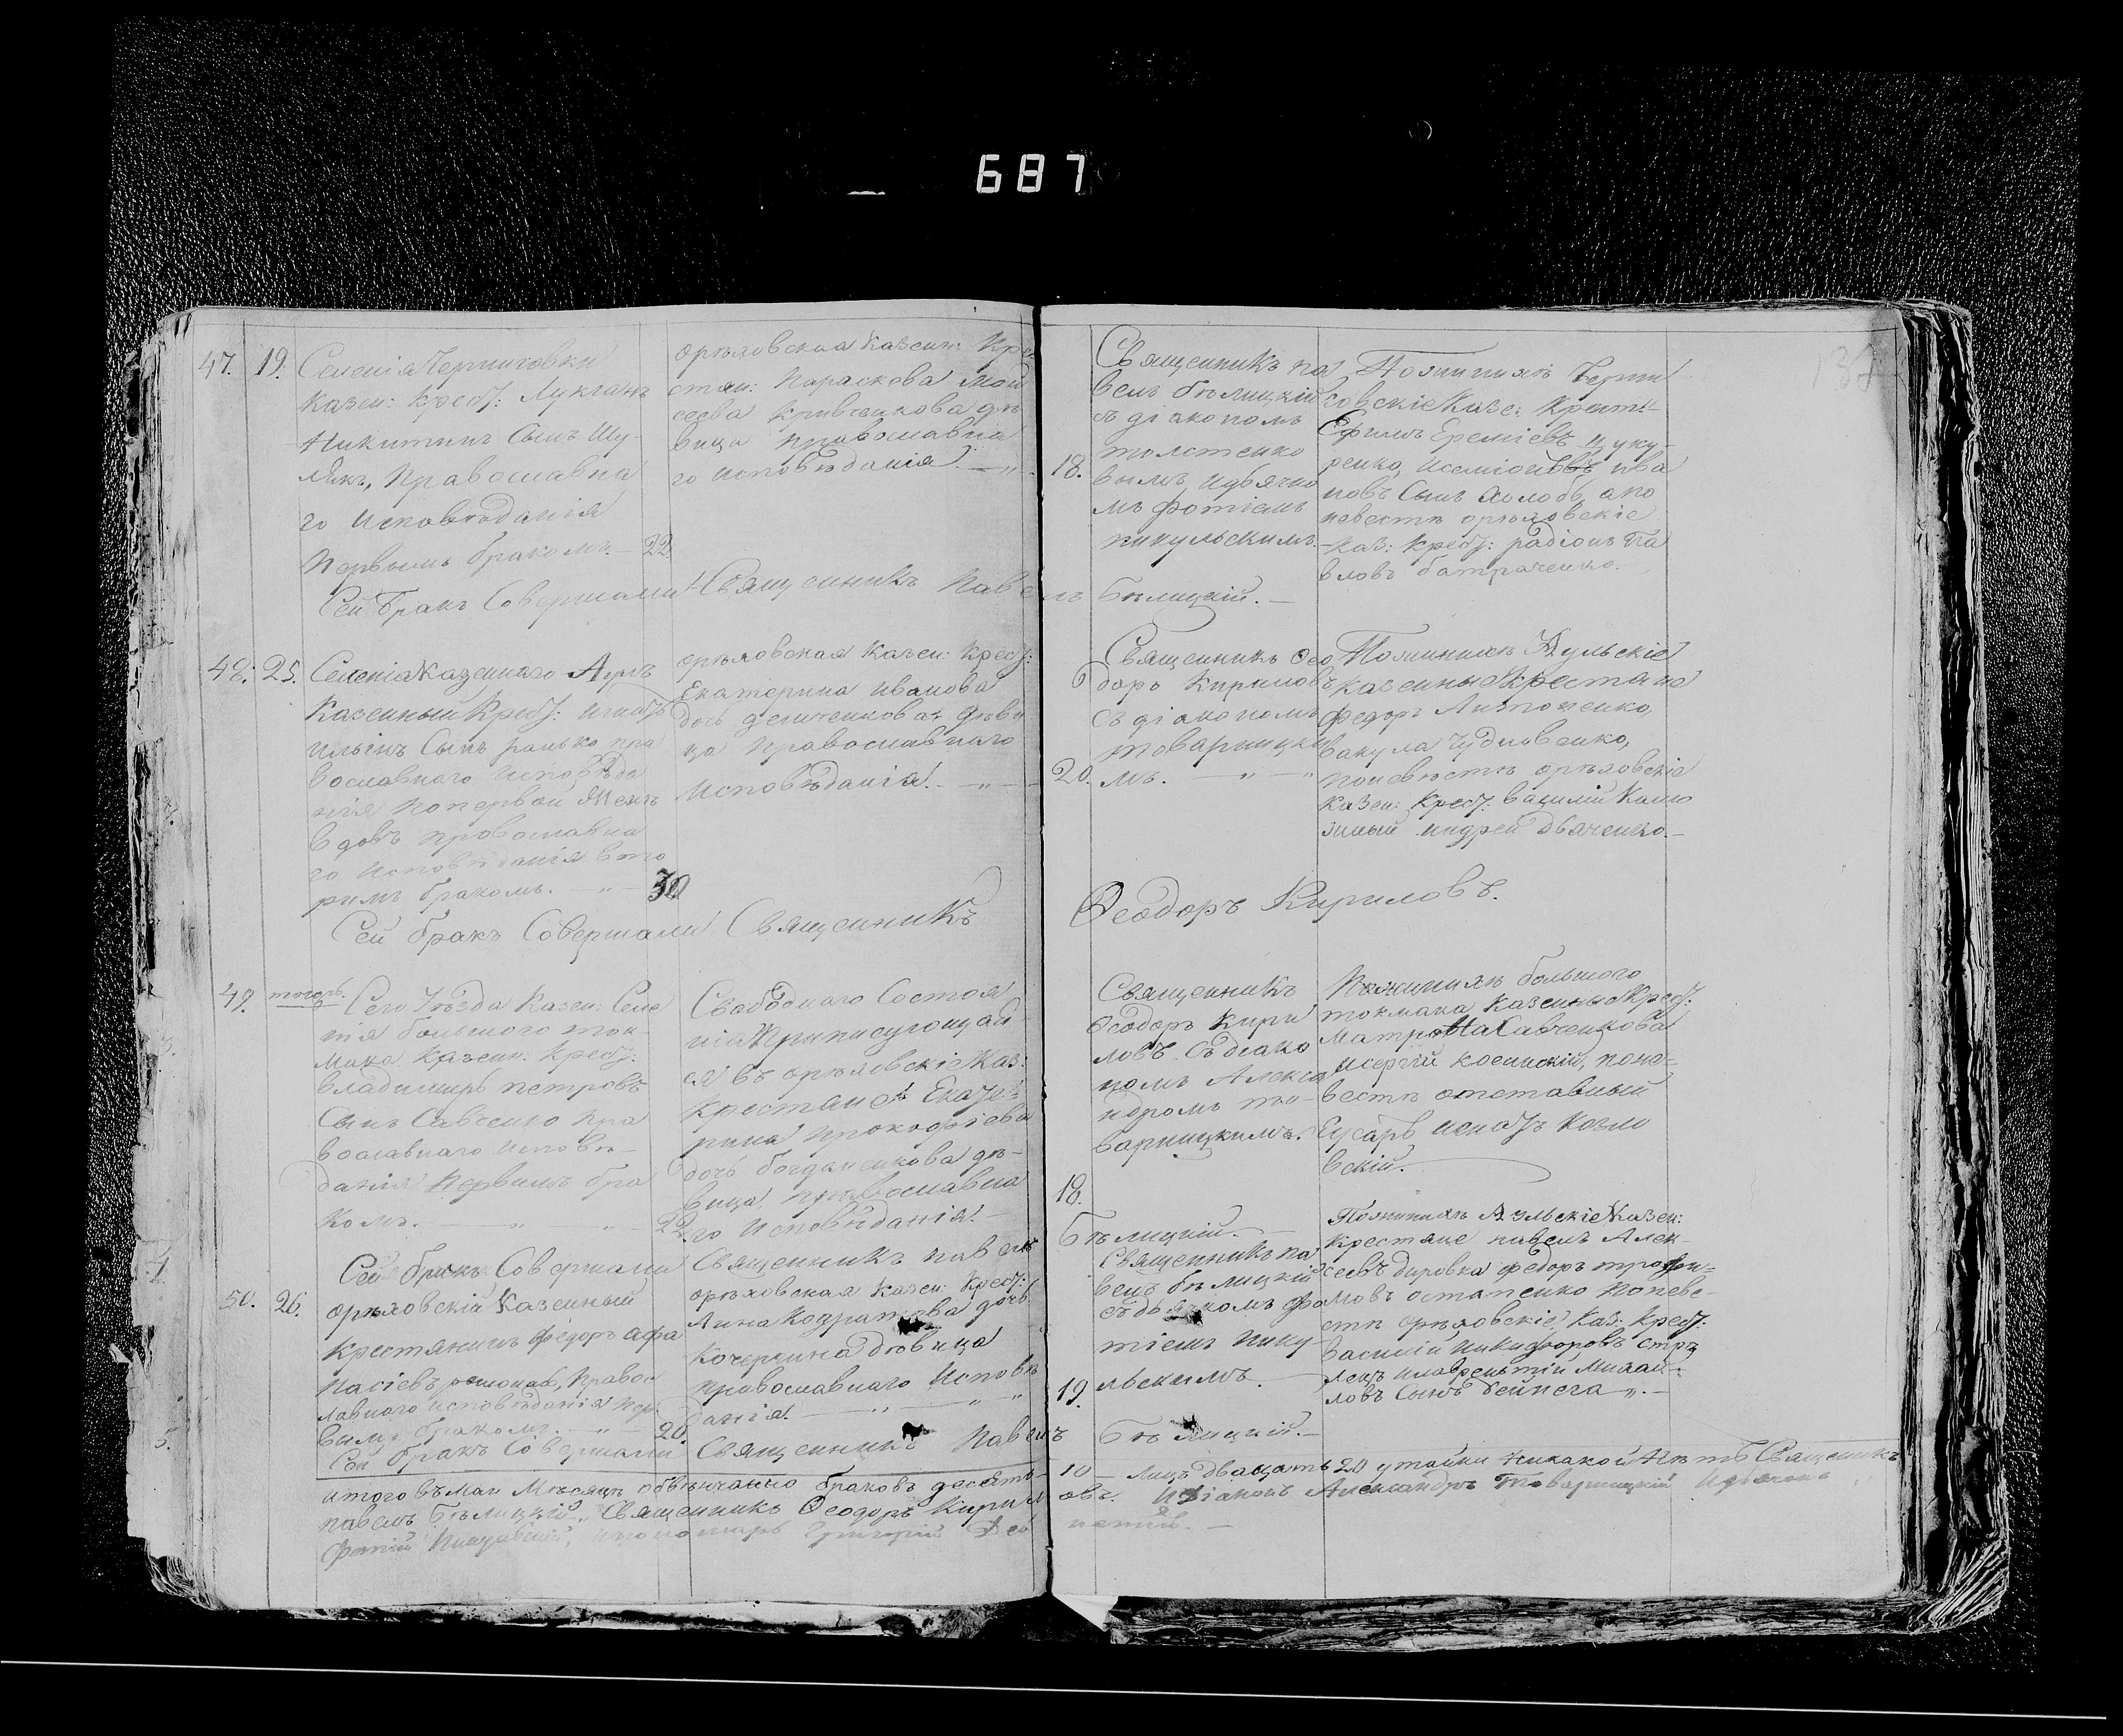 687
47. 19. Селенія Черниговки
Казен: Крест: Лукіанъ
Никитинъ Сынъ Шу-
лякъ, Православна
го исповѣданія
Первымъ бракомъ. — 22
орѣховская Казен: Кре
стян: Параскева Мой
сеева Кривенкова дѣ
вица православна
го исповѣданія. — „ —
18.
Священникъ па
велъ бѣлицкій
съ діакономъ
толстенко
вымъ, идьячко
мъ фотіемъ
пикульскимъ.
По женихѣ Черни
говскіе Казе: Крестн
Ефимъ Ереміевъ Цуку-
ренко, ива
новъ Сынъ Холобъ, апо
невестѣ орѣховскіе
Каз: Крест: радіонъ Па
вловъ батраченко.
Сей бракъ Совершали Священникъ Павелъ Бѣлицкій. —
48. 25. Селенія Казеннаго Аулъ
Казенный Крест: Игнатъ
Ильінъ Сынъ ранько пра
вославнаго исповѣда
нія по первой Женѣ
вдовъ православна
го исповѣданія вто
римъ бракомъ. — „ — 30
орѣховская Казен: Крест:
Екатерина иванова
дочь демченкова, дѣви
ца Православнаго
исповѣданія. — „ —
20.
Священникъ Фео
доръ Кириловъ
съ діакономъ
товарницки
мъ. — „ — „
По женихѣ Аульскіе
Казенные Крестяне
федоръ Антоненко,
вакула Чудновенко,
поневѣстѣ орѣховскіе
Казен: Крест: василій Калю
жный андрей дьяченко. —
Сей бракъ Совершали Священникъ Феодоръ Кириловъ.
49. тогожъ. Сего Уѣзда Казен: Селе
нія большого ток-
мака Казен: Крест:
владимиръ петровъ
Сынъ Савченко пра
вославнаго исповѣ-
данія первимъ бра
комъ. — „ — „ — 22.
Свободнаго Состоя
нія Приписующай
ся въ орѣховскіе Каз:
Крестяне Екате-
рина Прокофіева
дочь богданенкова дѣ-
вица, православна
го исповѣданія. —
18.
Священникъ
Феодоръ Кири
ловъ съ діако
номъ Алекса
ндромъ то-
варницкимъ.
По женихѣ большого
токмака Казенные Крест:
Матрона Савченкова
исергій косинскій, поне-
вестѣ отставный
Гусаръ игнатъ Козло
вскій.
Сей бракъ Совершали Священникъ павелъ Бѣлицкій. —
50. 26. орѣховскій Казенный
Крестянинъ Федоръ афа
насіевъ, Правос
лавнаго исповѣданія пер-
вымъ бракомъ. — „ — 20.
орѣховская Казен: Крест:
Анна Кодратова дочь
Кочергина дѣвица
православнаго исповѣ
данія. — „ — „
19.
Священникъ па
велъ бѣлицкій
съ дьячкомъ Фо
тіемъ пику
льскимъ.
По женихѣ Аульскіе Казен:
Крестяне павелъ Алек-
сеевъ дировка федоръ трофи-
мовъ остапенко поневе-
стѣ орѣховскіе, Каз: Крест:
василій никифоровъ стрѣ
лецъ илаврентій михай-
ловъ Сынъ бейнега „. —
Сей бракъ Совершали Священникъ Павелъ Бѣлицкій. —
итого въ маи Мѣсяцѣ обвѣнчано браковъ десять 10 — лицъ двацать 20 утайки никакой нѣтъ Священникъ
павелъ Бѣлицкій „ Священникъ Феодоръ Кириловъ. Идіаконъ Александръ Товарницкій Идьячокъ
Фотій Пикульскій, ипономарь Григорій